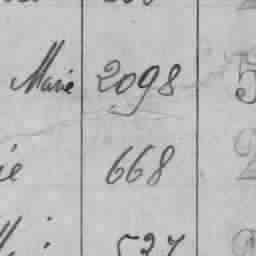 Marie 2098 5
ie 668 2
527